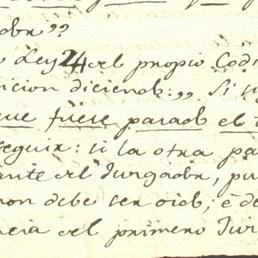 Ley 24 del propio Codi
icion diciendo: ,, Si
que fuese parado el
seguir: si la otra pa
ante el Jurgador, pu
non debe ser oido; é de
ncia del primero Jur